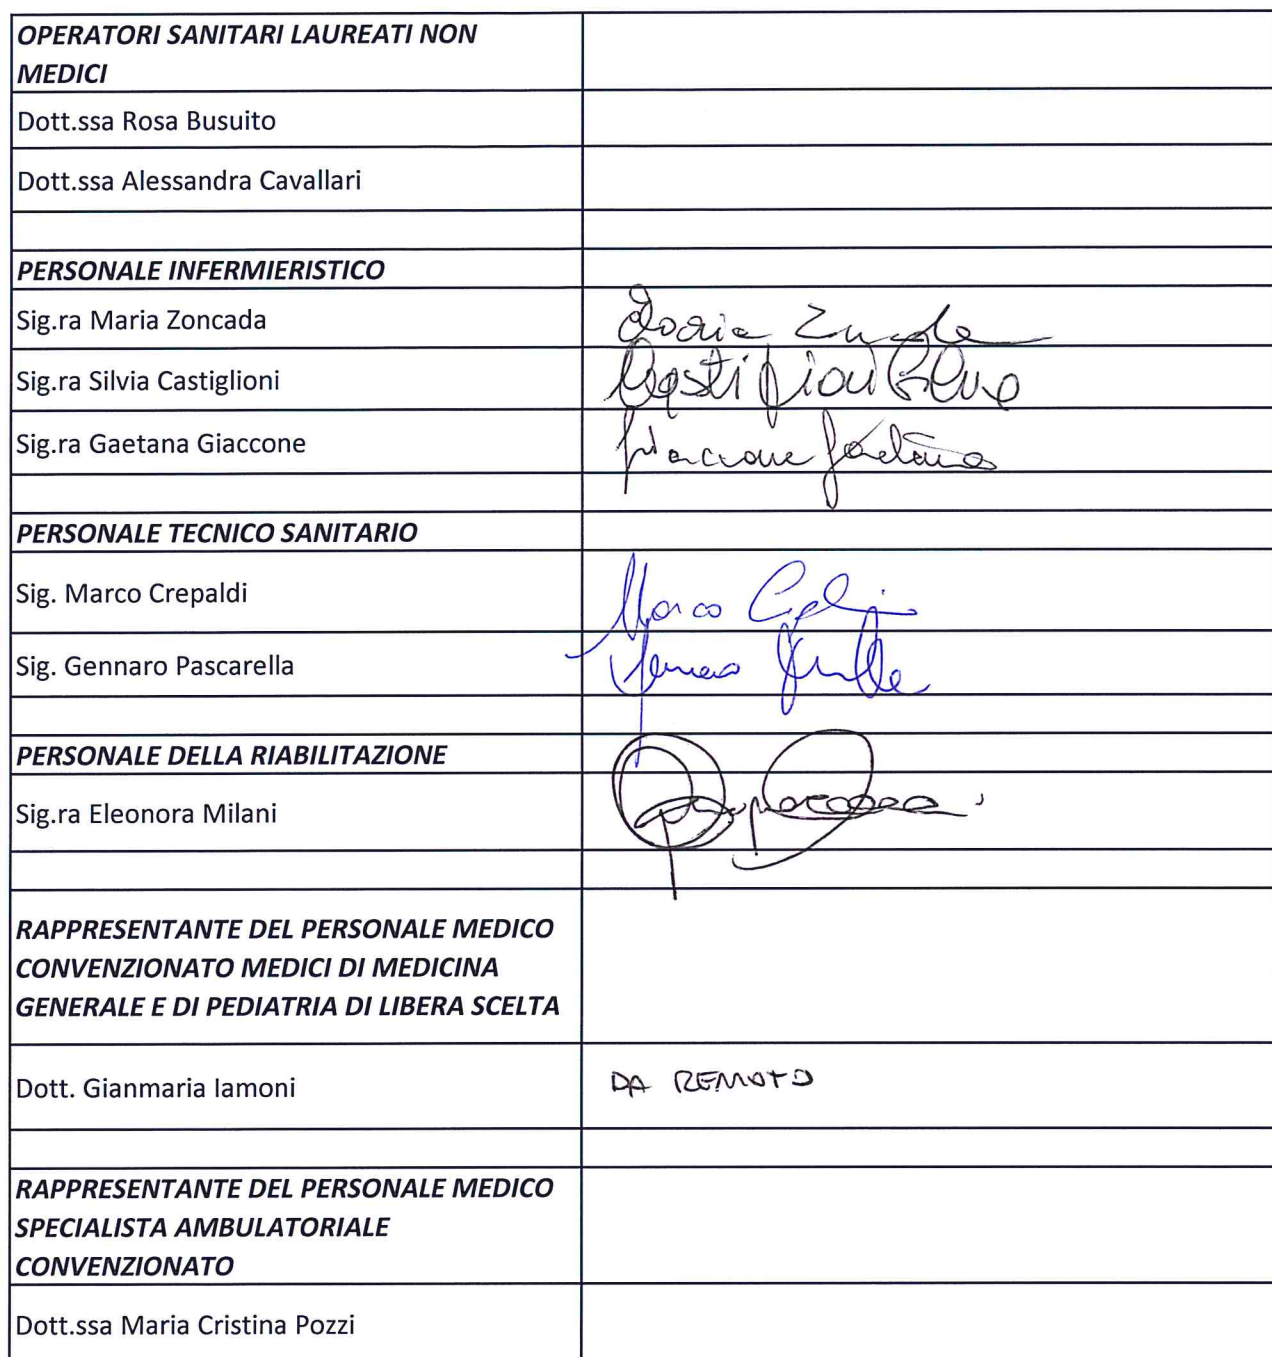 OPERATORI SANITARI LAUREATI NON
MEDICI
Dott.ssa Rosa Busuito
Dott.ssa Alessandra Cavallari
PERSONALE INFERMIERISTICO
Sig.ra Maria Zoncada
Sig.ra Silvia Castiglioni
Castiglioni Silvia
Sig.ra Gaetana Giaccone
Giaccone Gaetana
PERSONALE TECNICO SANITARIO
Sig. Marco Crepaldi
Marco
Sig. Gennaro Pascarella
Gennaro
PERSONALE DELLA RIABILITAZIONE
Sig.ra Eleonora Milani
RAPPRESENTANTE DEL PERSONALE MEDICO
CONVENZIONATO MEDICI DI MEDICINA
GENERALE E DI PEDIATRIA DI LIBERA SCELTA
Dott. Gianmaria Iamoni
DA REMOTO
RAPPRESENTANTE DEL PERSONALE MEDICO
SPECIALISTA AMBULATORIALE
CONVENZIONATO
Dott.ssa Maria Cristina Pozzi